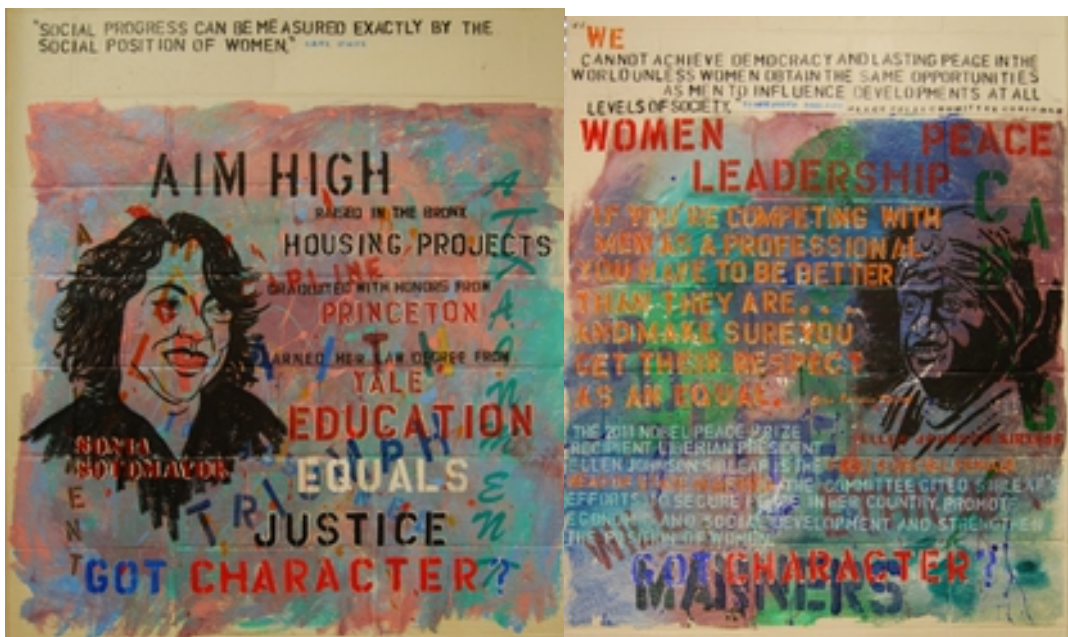 "SOCIAL PROGRESS CAN BE MEASURED EXACTLY BY THE
SOCIAL POSITION OF WOMEN,"
AIM HIGH
RAISED IN THE BRONX
HOUSING PROJECTS
GRADUATED WITH HONORS FROM
PRINCETON
EARNED HER LAW DEGREE FROM
YALE
EDUCATION
EQUALS
JUSTICE
SONIA
SOTOMAYOR
TRIUMPH
GOT CHARACTER?
"WE
CANNOT ACHIEVE DEMOCRACY AND LASTING PEACE IN THE
WORLD UNLESS WOMEN OBTAIN THE SAME OPPORTUNITIES
AS MEN TO INFLUENCE DEVELOPMENTS AT ALL
LEVELS OF SOCIETY."
WOMEN PEACE
LEADERSHIP
IF YOU'RE COMPETING WITH
MEN AS A PROFESSIONAL
YOU HAVE TO BE BETTER
THAN THEY ARE...
AND MAKE SURE YOU
GET THEIR RESPECT
AS AN EQUAL.
ELLEN JOHNSON SIRLEAF
THE 2011 NOBEL PEACE PRIZE
RECIPIENT LIBERIAN PRESIDENT
ELLEN JOHNSON SIRLEAF IS THE
THE COMMITTEE CITED SIRLEAF'S
EFFORTS TO SECURE PEACE IN HER COUNTRY, PROMOTE
ECONOMIC AND SOCIAL DEVELOPMENT AND STRENGTHEN
THE POSITION OF WOMEN
GOT CHARACTER?
MANNERS